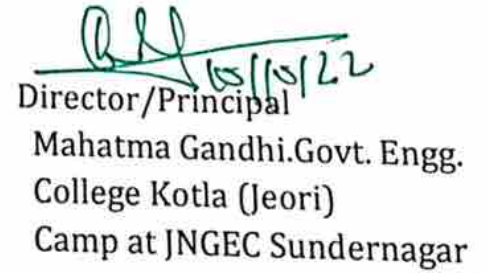 10/10/22
Director/Principal
Mahatma Gandhi.Govt. Engg.
College Kotla (Jeori)
Camp at JNGEC Sundernagar